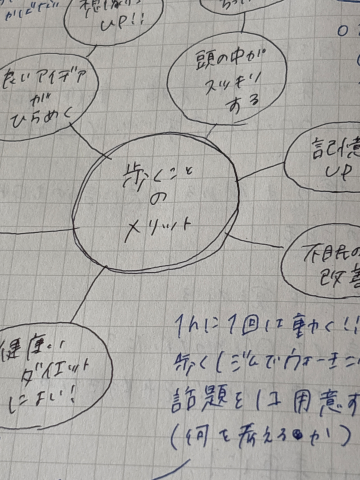 UP!!
良いアイデア
が
ひらめく
頭の中が
スッキリ
する
歩くこと
の
メリット
記憶
UP
不眠の
改善
健康
ダイエット
によい!
1hに1回は動く!!
歩く(ジムでウォーキン
話題を1コ用意す
(何を考えるか)